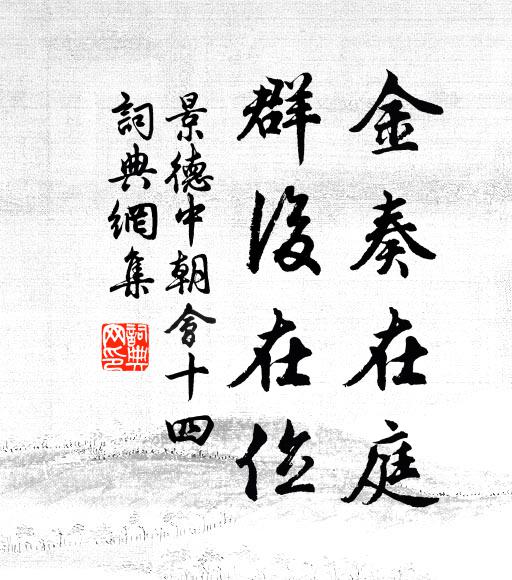 金奏在庭
群後在位
景德中朝會十四
詞典網集
詞典网印